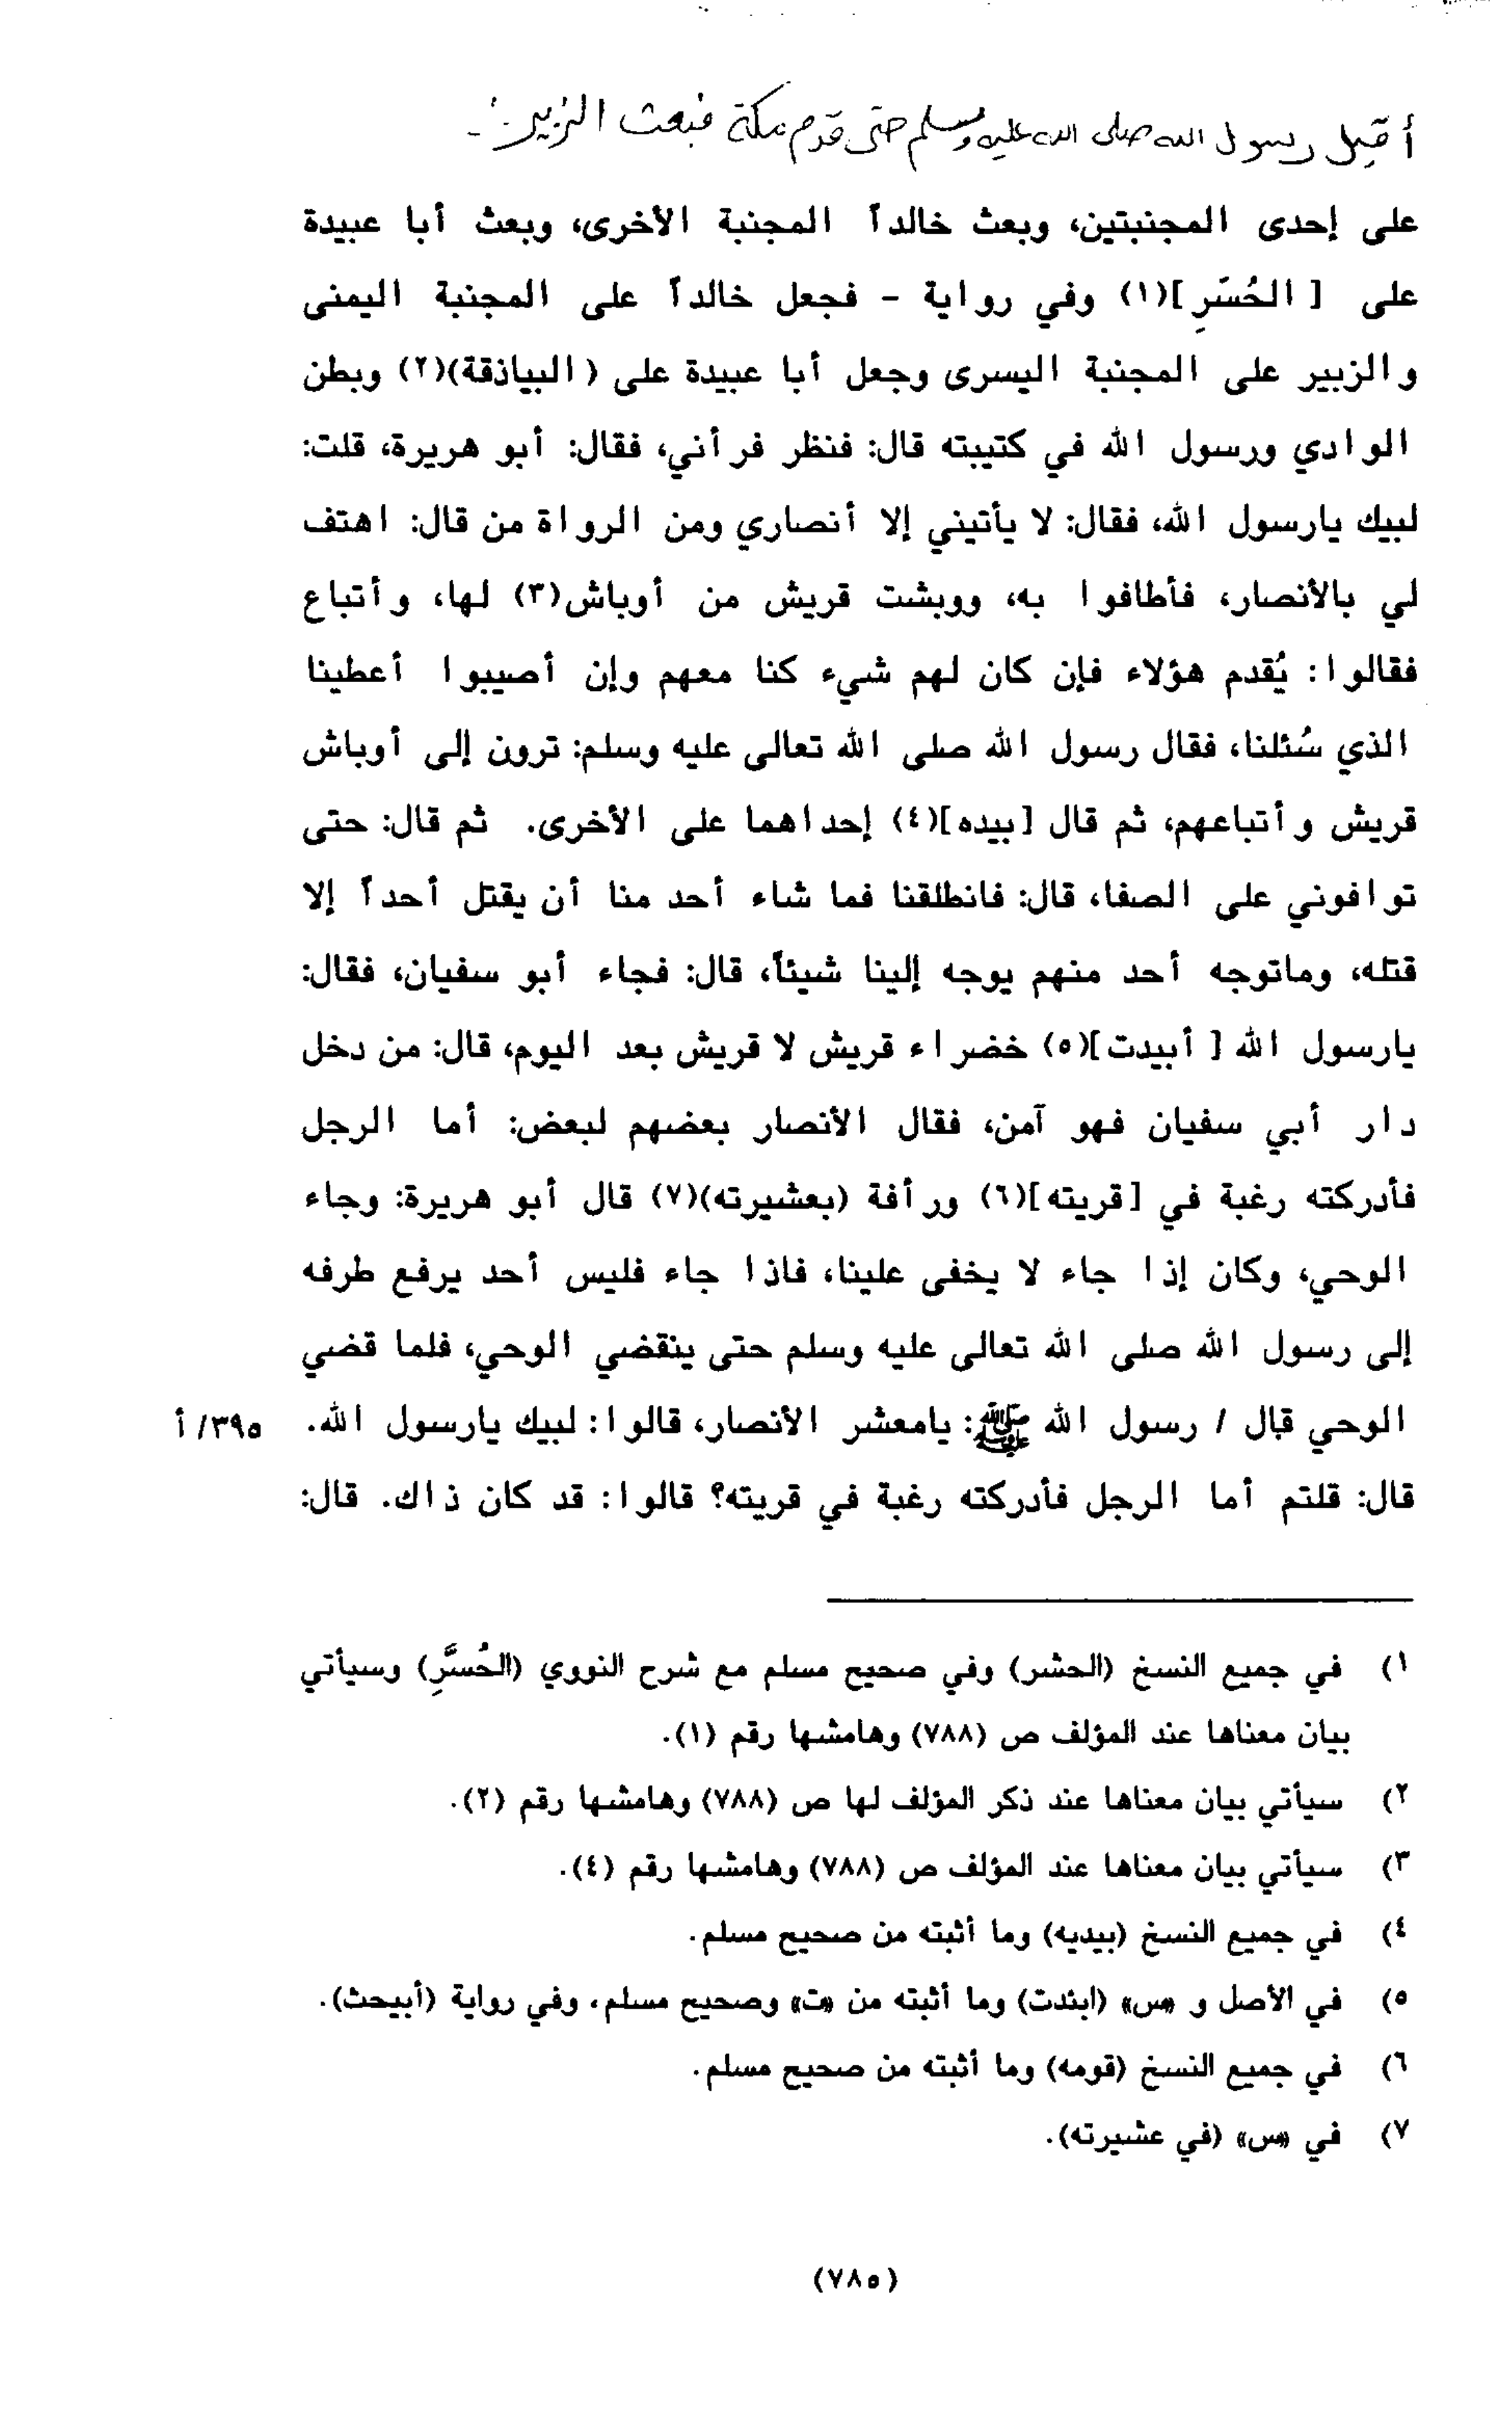 أقبل رسول الله صلى الله عليه وسلم حتى قدم مكة فبعث الزبير:-
على إحدى المجنبتين، وبعث خالداً المجنبة الأخرى، وبعث أبا عبيدة
على [الحُسَّرِ](١) وفي رواية - فجعل خالداً على المجنبة اليمنى
والزبير على المجنبة اليسرى وجعل أبا عبيدة على (البياذقة)(٢) وبطن
الوادي ورسول الله في كتيبته قال: فنظر فرأني، فقال: أبو هريرة، قلت:
لبيك يارسول الله، فقال: لا يأتيني إلا أنصاري ومن الرواة من قال: اهتف
لي بالأنصار، فأطافوا به، ووبشت قريش من أوباش(٣) لها، وأتباع
فقالوا: يُقدم هؤلاء فإن كان لهم شيء كنا معهم وإن أصيبوا أعطينا
الذي سُئلنا، فقال رسول الله صلى الله تعالى عليه وسلم: ترون إلى أوباش
قريش وأتباعهم، ثم قال [بيده](٤) إحداهما على الأخرى. ثم قال: حتى
توافوني على الصفا، قال: فانطلقنا فما شاء أحد منا أن يقتل أحداً إلا
قتله، وماتوجه أحد منهم يوجه إلينا شيئاً، قال: فجاء أبو سفيان، فقال:
يارسول الله [أبيدت](٥) خضراء قريش لا قريش بعد اليوم، قال: من دخل
دار أبي سفيان فهو آمن، فقال الأنصار بعضهم لبعض: أما الرجل
فأدركته رغبة في [قريته](٦) ورأفة (بعشيرته)(٧) قال أبو هريرة: وجاء
الوحي، وكان إذا جاء لا يخفى علينا، فاذا جاء فليس أحد يرفع طرفه
إلى رسول الله صلى الله تعالى عليه وسلم حتى ينقضي الوحي، فلما قضي
الوحي قال / رسول الله ﷺ: يامعشر الأنصار، قالوا: لبيك يارسول الله. ٣٩٥/ أ
قال: قلتم أما الرجل فأدركته رغبة في قريته؟ قالوا: قد كان ذاك. قال:
١) في جميع النسخ (الحشر) وفي صحيح مسلم مع شرح النووي (الحُسَّرِ) وسيأتي
بيان معناها عند المؤلف ص (٧٨٨) وهامشها رقم (١).
٢) سيأتي بيان معناها عند ذكر المؤلف لها ص (٧٨٨) وهامشها رقم (٢).
٣) سيأتي بيان معناها عند المؤلف ص (٧٨٨) وهامشها رقم (٤).
٤) في جميع النسخ (بيديه) وما أثبته من صحيح مسلم.
٥) في الأصل و «س» (ابئدت) وما أثبته من «ت» وصحيح مسلم، وفي رواية (أبيحث).
٦) في جميع النسخ (قومه) وما أثبته من صحيح مسلم.
٧) في «س» (في عشيرته).
(٧٨٥)